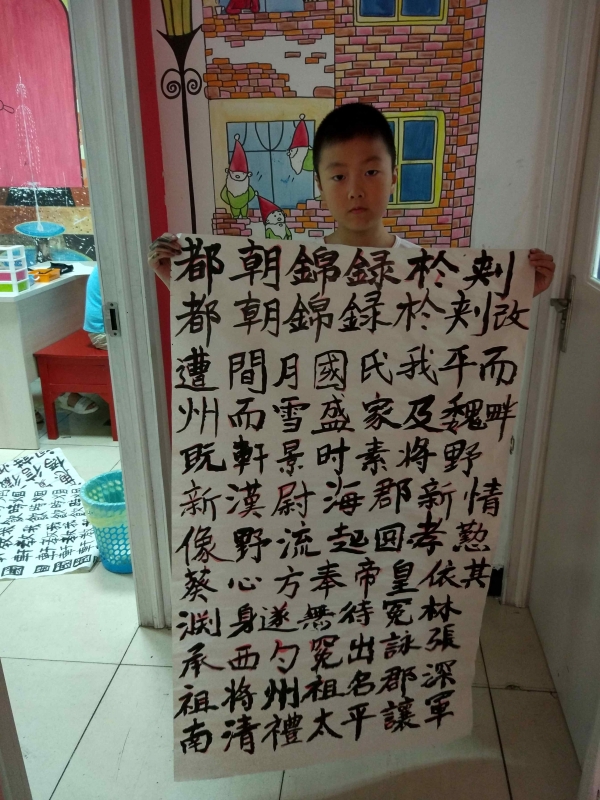 都朝錦録於刺
都朝錦録於刺改
遭間月國氏我平而
州而雪盛家及魏畔
既軒景时素将野
新漢尉海郡新情
像野流起回孝懃
葵心方奉帝皇依其
渊身遂無待冤林
承西勺冤出詠張
祖将州祖名郡深
南清禮太平讓軍